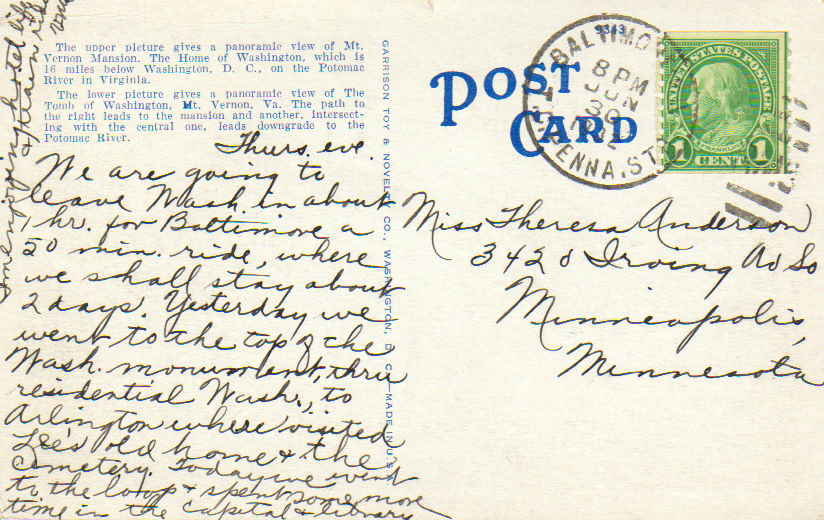 The upper picture gives a panoramic view of Mt.
Vernon Mansion. The Home of Washington, which is
16 miles below Washington, D. C., on the Potomac
River in Virginia.
The lower picture gives a panoramic view of The
Tomb of Washington, Mt. Vernon, Va. The path to
the right leads to the mansion and another, intersect-
ing with the central one, leads downgrade to the
Potomac River.
Thurs. eve.
We are going to
leave Wash. in about
1 hr. for Baltimore a
50 min. ride, where
we shall stay about
2 days. Yesterday we
went to the top of the
Wash. monument, thru
residential Wash., to
Arlington where visited
Lee's old home & the
Cemetery. Today we went
to the loop & spent some more
time in the Capital & library
Am enjoying hotel life
& train ride
GARRISON TOY & NOVELTY CO., WASHINGTON, D. C.—MADE IN U.S.
POST
CARD
9343
BALTIMORE
8 PM
JUN
30
ENNA. STA
UNITED STATES POSTAGE
FRANKLIN
1 CENT 1
Miss Theresa Anderson
3420 Irving Av So
Minneapolis,
Minnesota